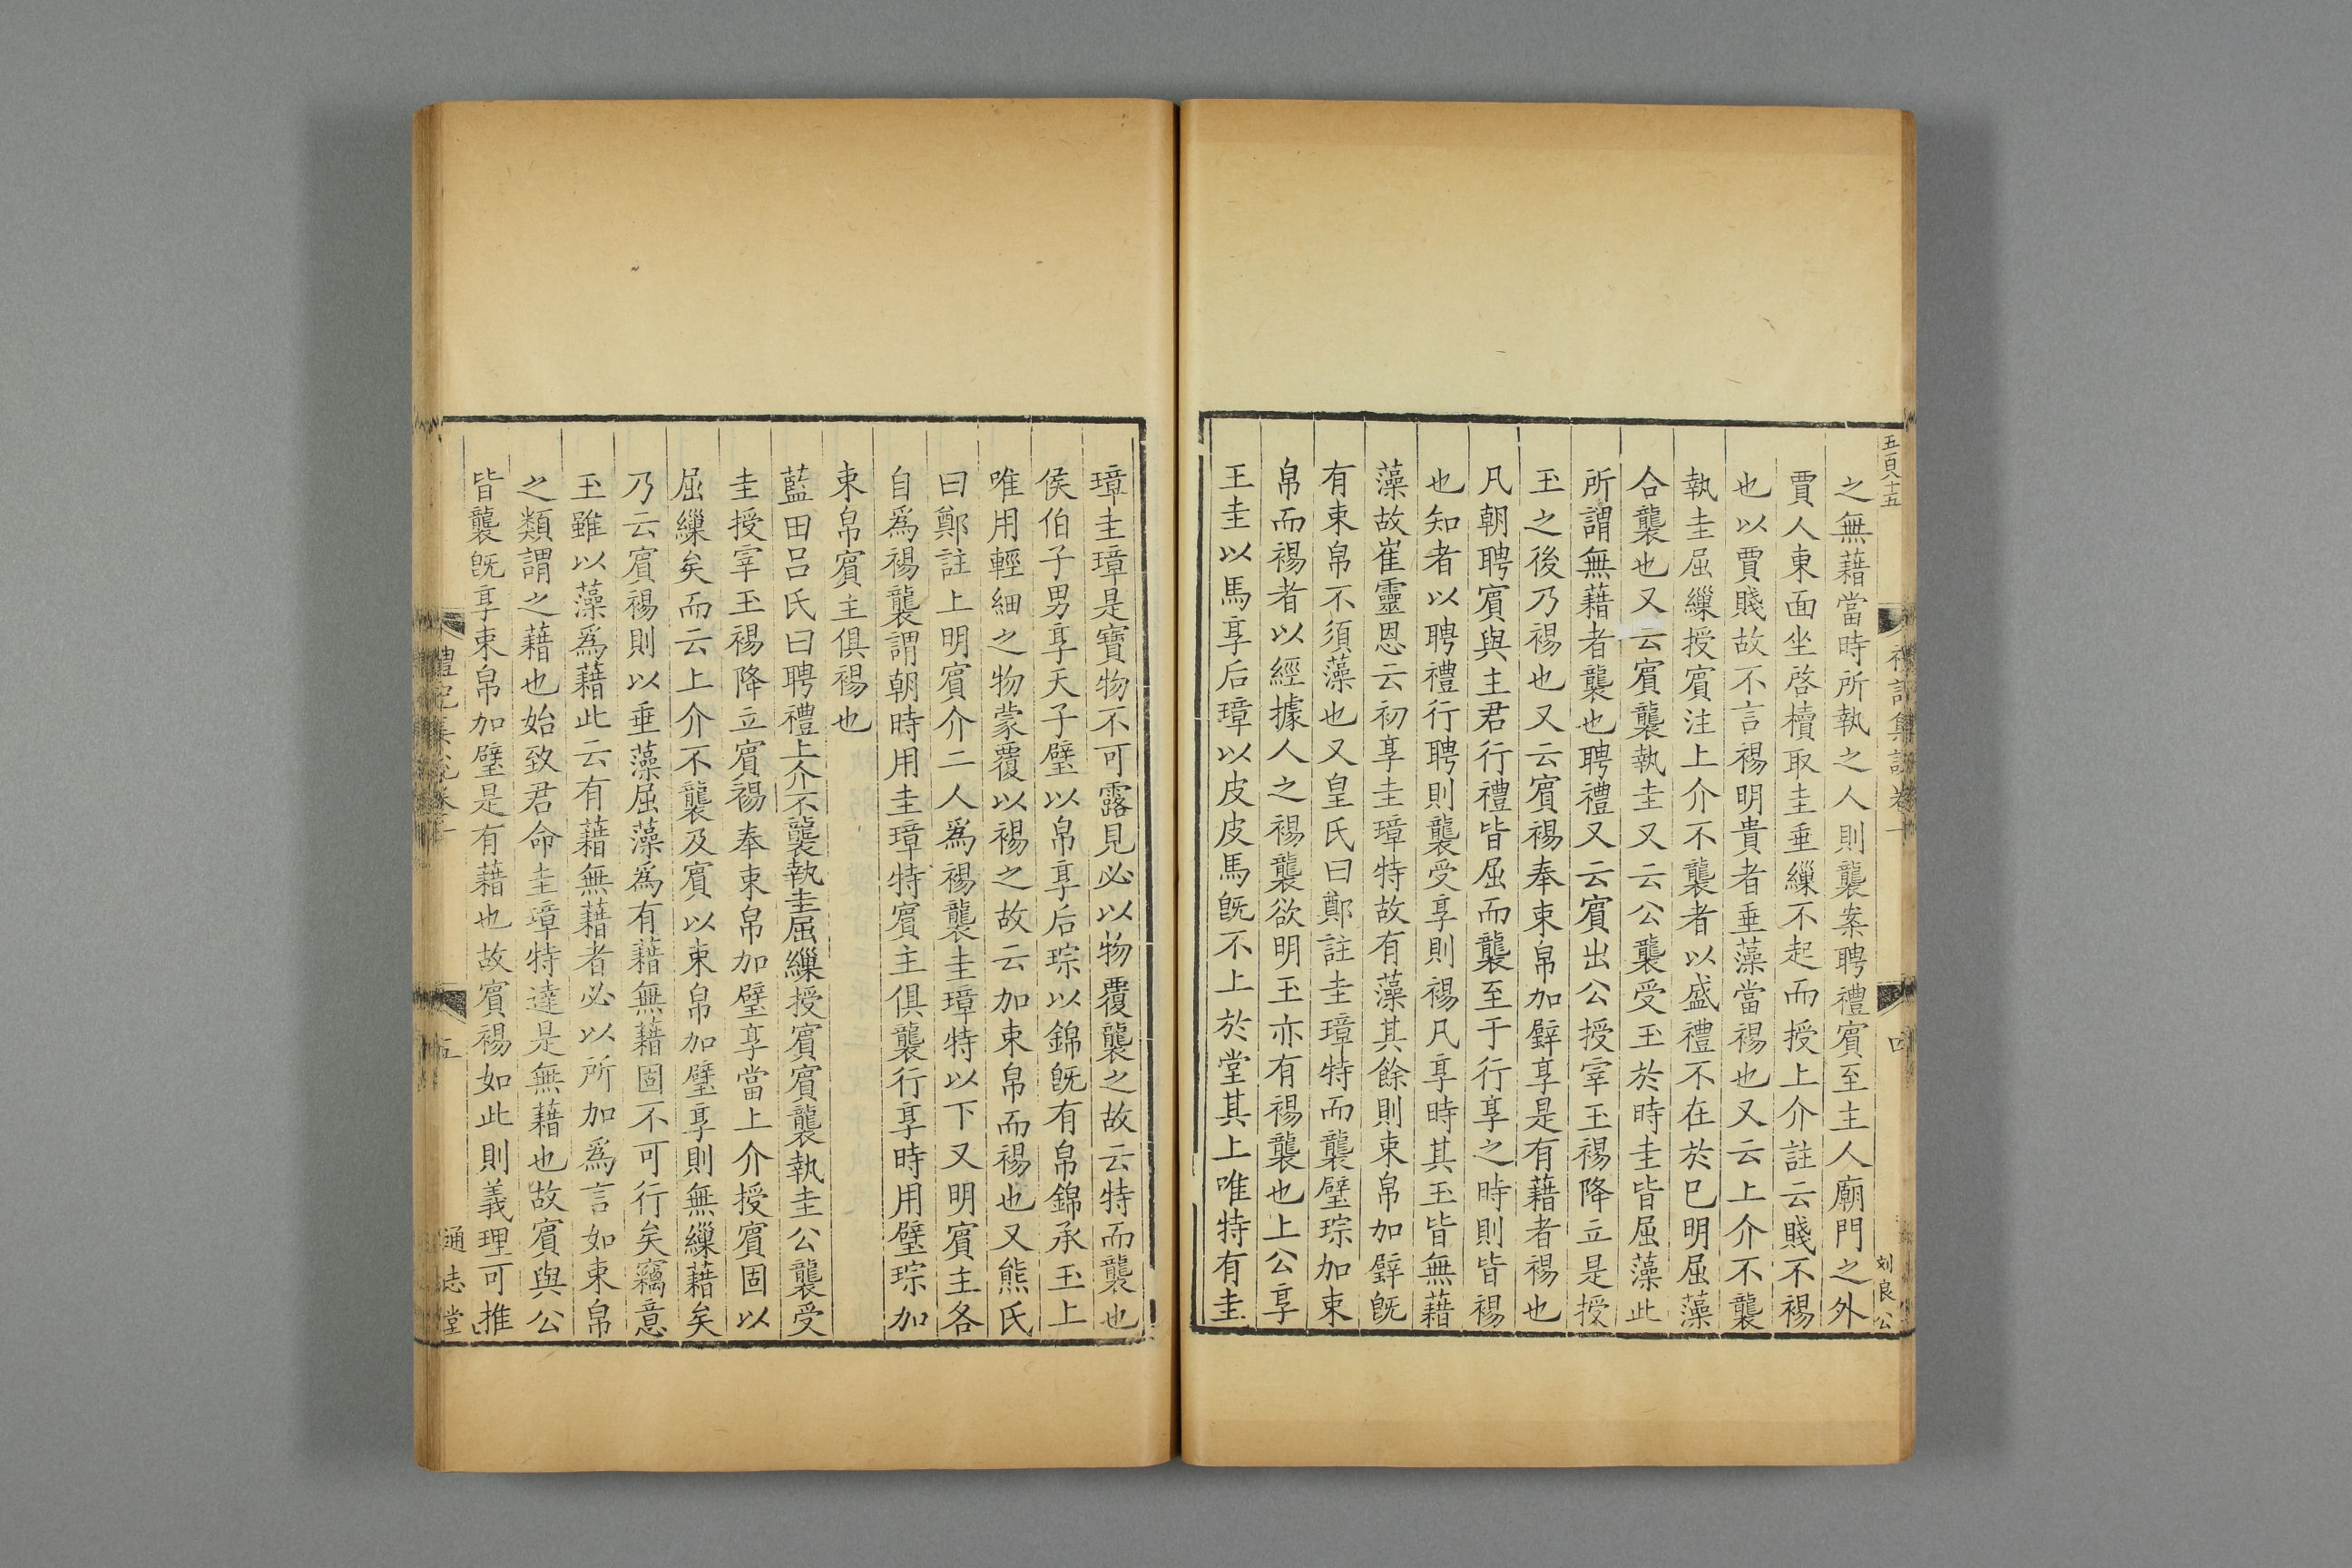 五百十五
禮記集說卷十
四
刘良公
之無藉當時所執之人則襲案聘禮賓至主人廟門之外
賈人東面坐啓櫝取圭垂繅不起而授上介註云賤不裼
也以賈賤故不言裼明貴者垂藻當裼也又云上介不襲
執圭屈繅授賓注上介不襲者以盛禮不在於巳明屈藻
合襲也又云賓襲執圭又云公襲受玉於時圭皆屈藻此
所謂無藉者襲也聘禮又云賓出公授宰玉裼降立是授
玉之後乃裼也又云賓裼奉束帛加璧享是有藉者裼也
凡朝聘賓與主君行禮皆屈而襲至于行享之時則皆裼
也知者以聘禮行聘則襲受享則裼凡享時其玉皆無藉
藻故崔靈恩云初享圭璋特故有藻其餘則束帛加璧旣
有束帛不須藻也又皇氏曰鄭註圭璋特而襲璧琮加束
帛而裼者以經據人之裼襲欲明玉亦有裼襲也上公享
王圭以馬享后璋以皮皮馬旣不上於堂其上唯特有圭
璋圭璋是寶物不可露見必以物覆襲之故云特而襲也
侯伯子男享天子璧以帛享后琮以錦旣有帛錦承玉上
唯用輕細之物蒙覆以裼之故云加束帛而裼也又熊氏
曰鄭註上明賓介二人爲裼襲圭璋特以下又明賓主各
自爲裼襲謂朝時用圭璋特賓主俱襲行享時用璧琮加
束帛賓主俱裼也
藍田呂氏曰聘禮上介不襲執圭屈繅授賓賓襲執圭公襲受
圭授宰玉裼降立賓裼奉束帛加璧享當上介授賓固以
屈繅矣而云上介不襲及賓以束帛加璧享則無繅藉矣
乃云賓裼則以垂藻屈藻爲有藉無藉固不可行矣竊意
玉雖以藻爲藉此云有藉無藉者必以所加爲言如束帛
之類謂之藉也始致君命圭璋特達是無藉也故賓與公
皆襲旣享束帛加璧是有藉也故賓裼如此則義理可推
禮記集說卷十
五
通志堂